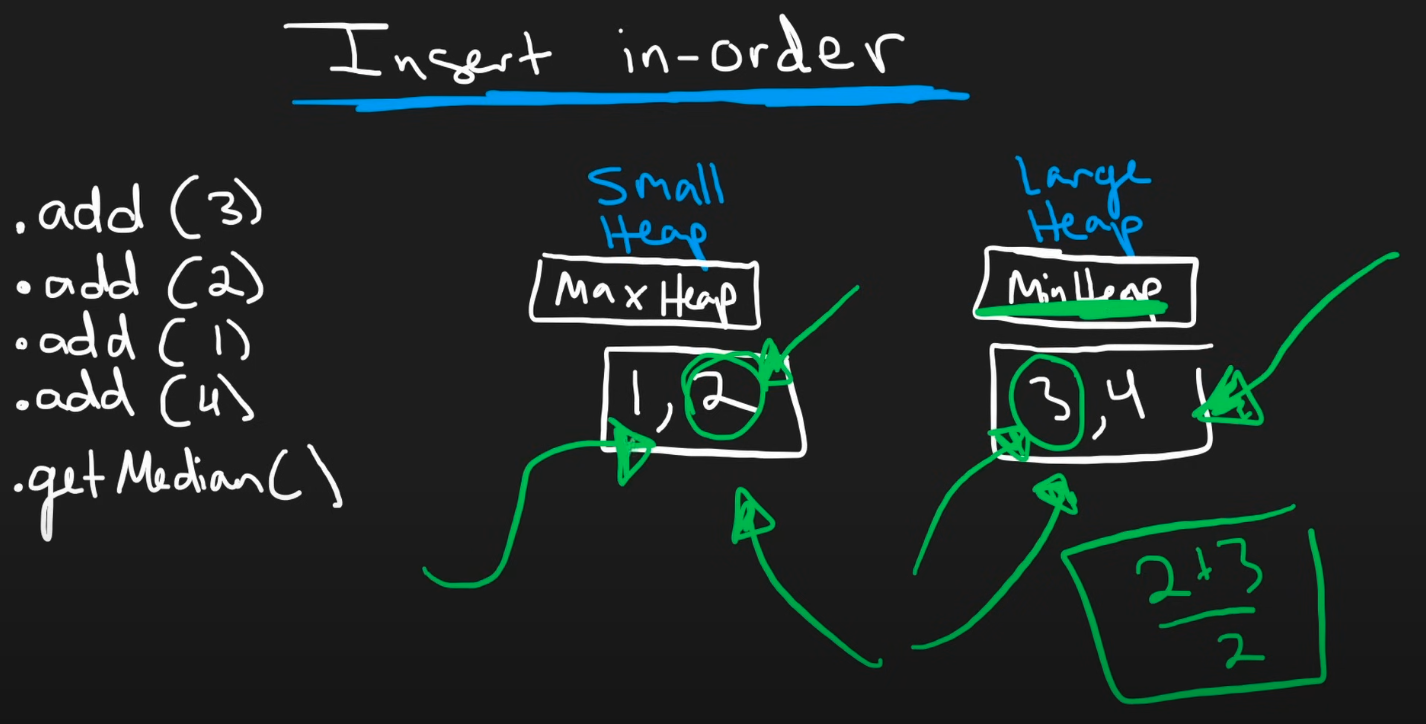 Insert in-order
.add (3)
.add (2)
.add (1)
.add (4)
.getMedian()
Small
Heap
Max Heap
1, 2
Large
Heap
Min Heap
3, 4
2+3
2